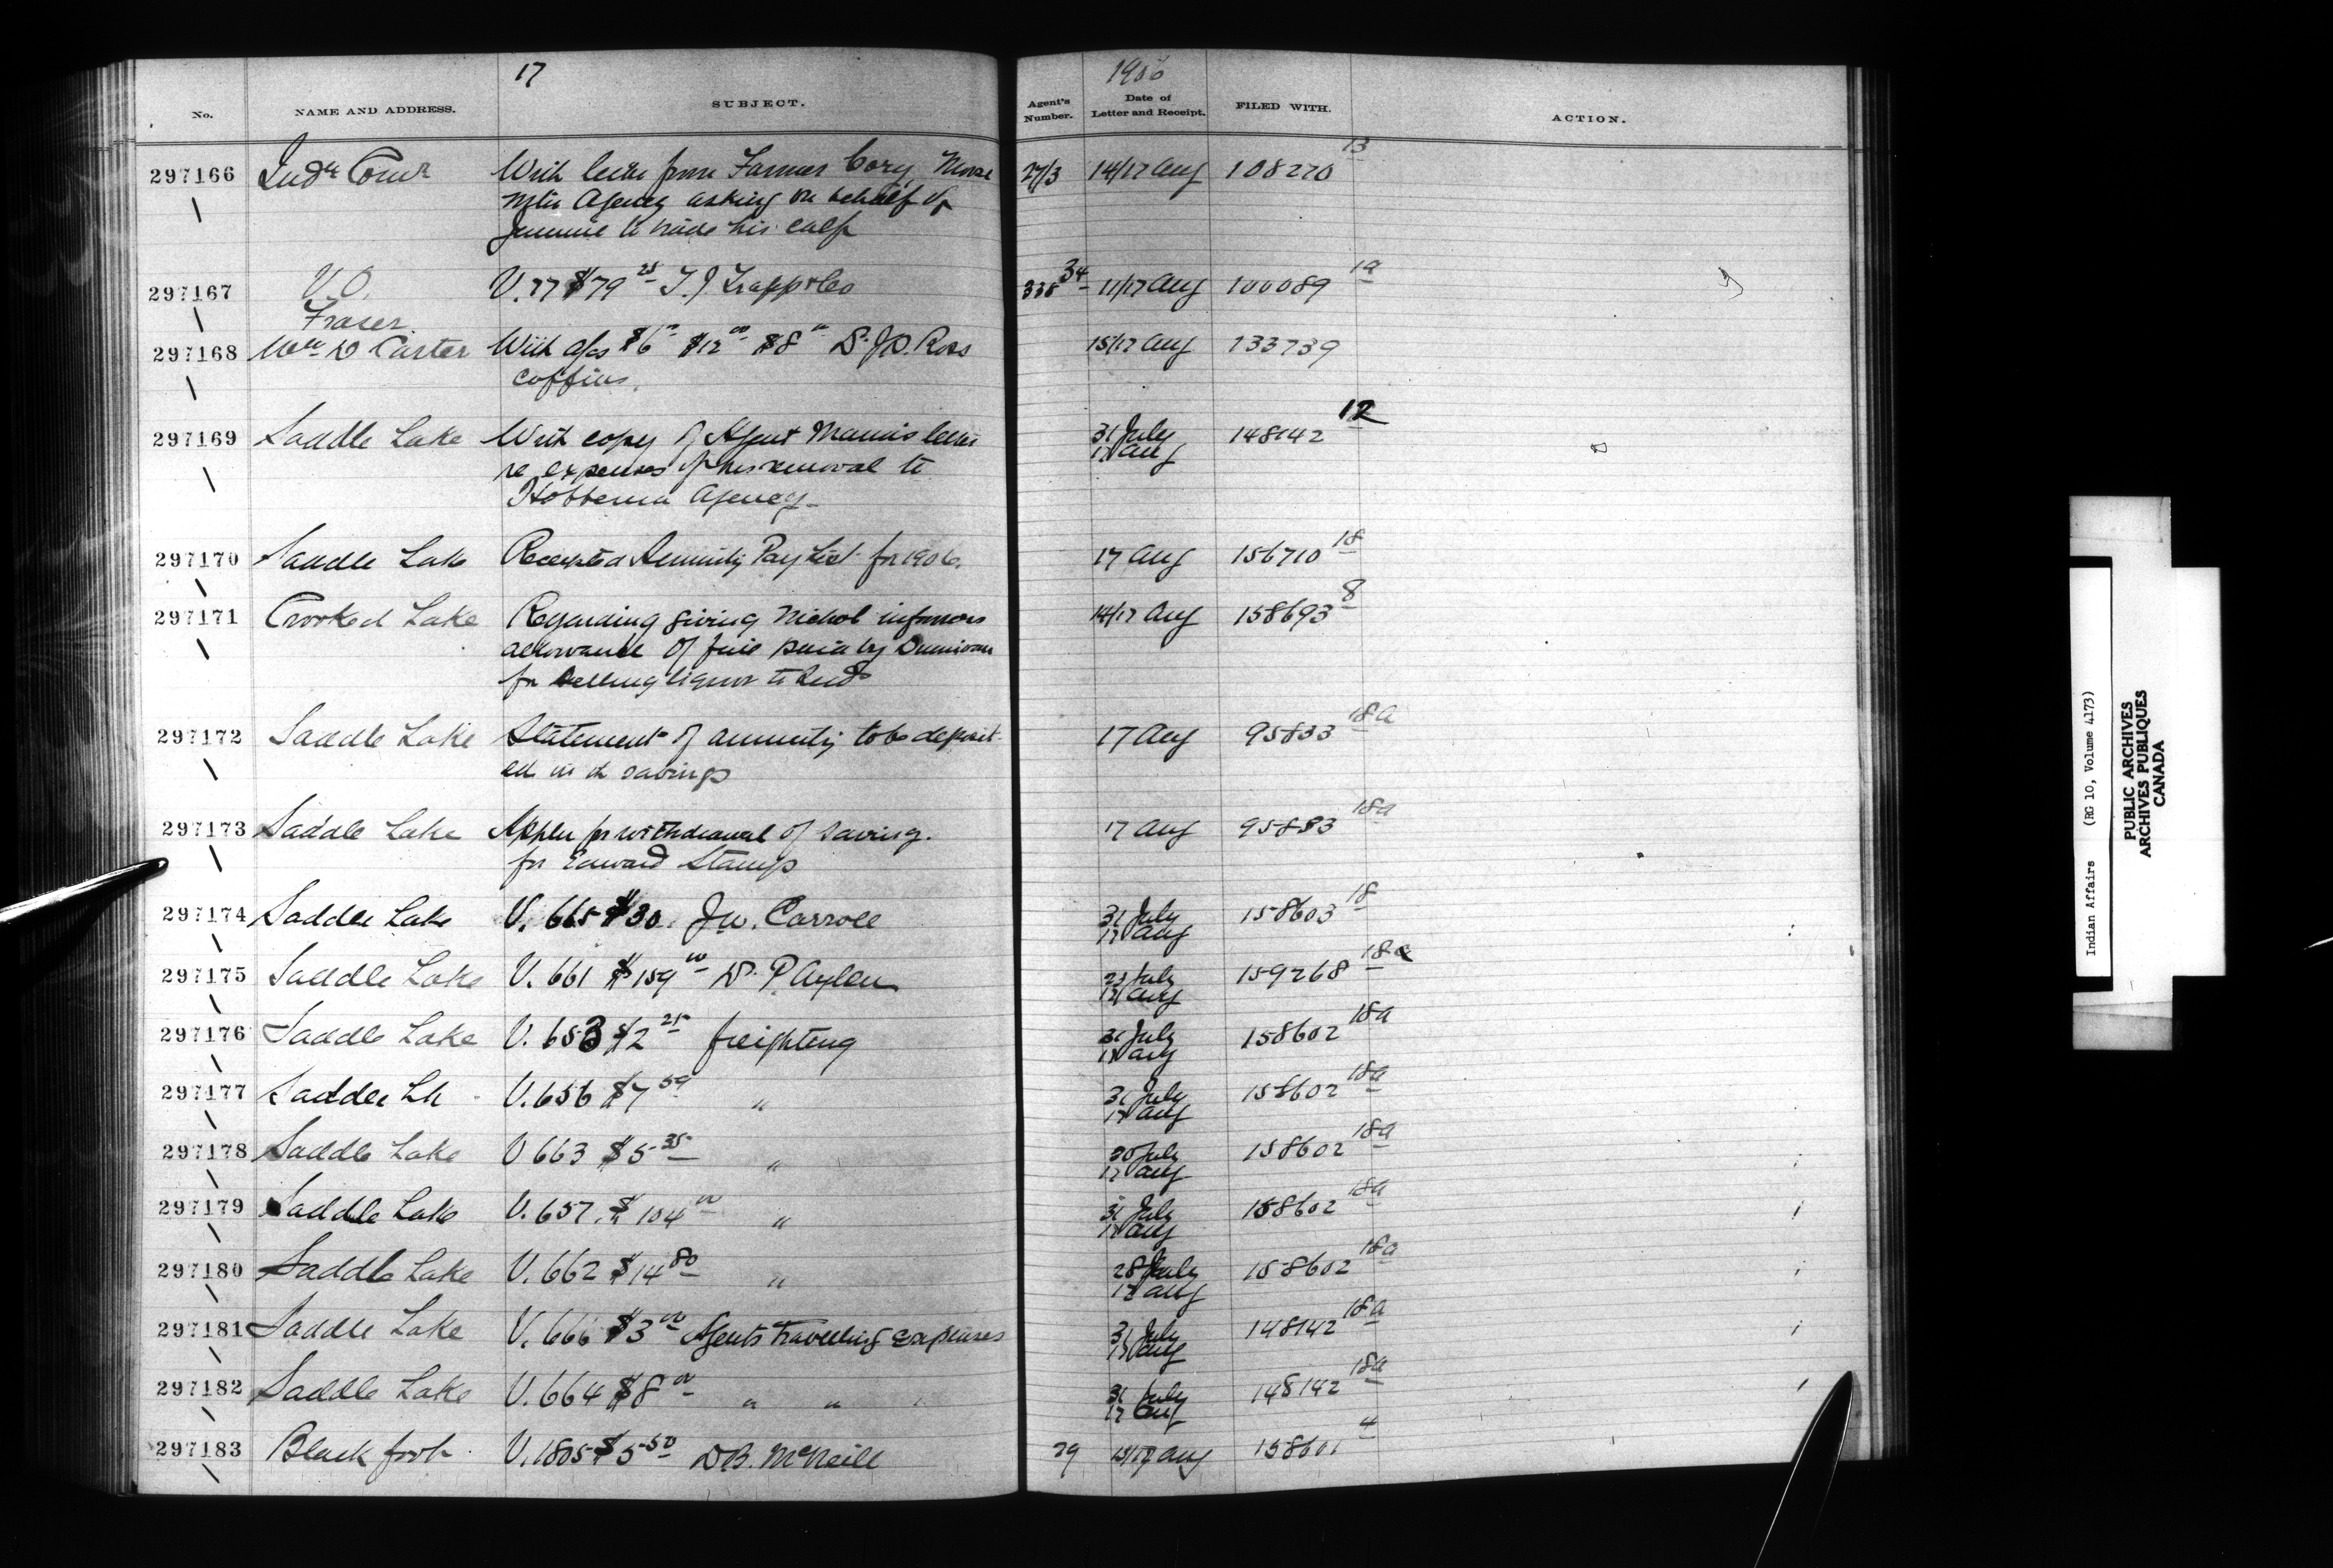 17
1906
No. NAME AND ADDRESS. SUBJECT. Agent's Number. Date of Letter and Receipt. FILED WITH. ACTION.
297166 Indn Comr With letter from Farmer Cory, Moose 27/3 14/17 Aug 108270 13
Mtn Agency asking on behalf of
Jimmie to trade his calf
297167 V.O. V. 77 $79 25 T. J. Trapp & Co 338 34 11/17 Aug 100089 19
Fraser
297168 Wm D Carter With a/cs $6 00 $12 00 $8 00 Dr J.D. Ross 15/17 Aug 133739
coffins.
297169 Saddle Lake With copy of Agent Mann's letter 31 July 148142 12
re expenses of his removal to 17 Aug
Hobbema Agency
297170 Saddle Lake Receipted Annuity Pay List for 1906. 17 Aug 156710 18
297171 Crooked Lake Regarding giving Nichol informers 14/17 Aug 158693 8
allowance of fine paid by
for selling liquor to Inds
297172 Saddle Lake Statement of annuity to be deposit- 17 Aug 95833 18a
ed in savings
297173 Saddle Lake Appln for withdrawal of saving. 17 Aug 95883 18a
for Edward Stamp
297174 Saddle Lake V. 665 $30. J.W. Carroll 31 July 158603 18
17 Aug
297175 Saddle Lake V. 661 $159 00 Dr. P. Aylen 23 July 159268 18a
17 Aug
297176 Saddle Lake V. 653 $2 25 freighting 31 July 158602 18a
17 Aug
297177 Saddle Lk V. 656 $7 59 " 31 July 158602 18a
17 Aug
297178 Saddle Lake V 663 $5 35 " 20 July 158602 18a
17 Aug
297179 Saddle Lake V. 657. $104 00 " 31 July 158602 18a
17 Aug
297180 Saddle Lake V. 662 $14 80 " 28 July 158602 18a
17 Aug
297181 Saddle Lake V. 666 $3 00 Agents travelling expenses 31 July 148142 18a
17 Aug
297182 Saddle Lake V. 664 $8 00 " " 31 July 148142 18a
17 Aug
297183 Blackfoot V. 1805 $5 50 D.B. McNeill 79 15/17 Aug 158601 4
Indian Affairs (RG 10, Volume 4173)
PUBLIC ARCHIVES
ARCHIVES PUBLIQUES
CANADA